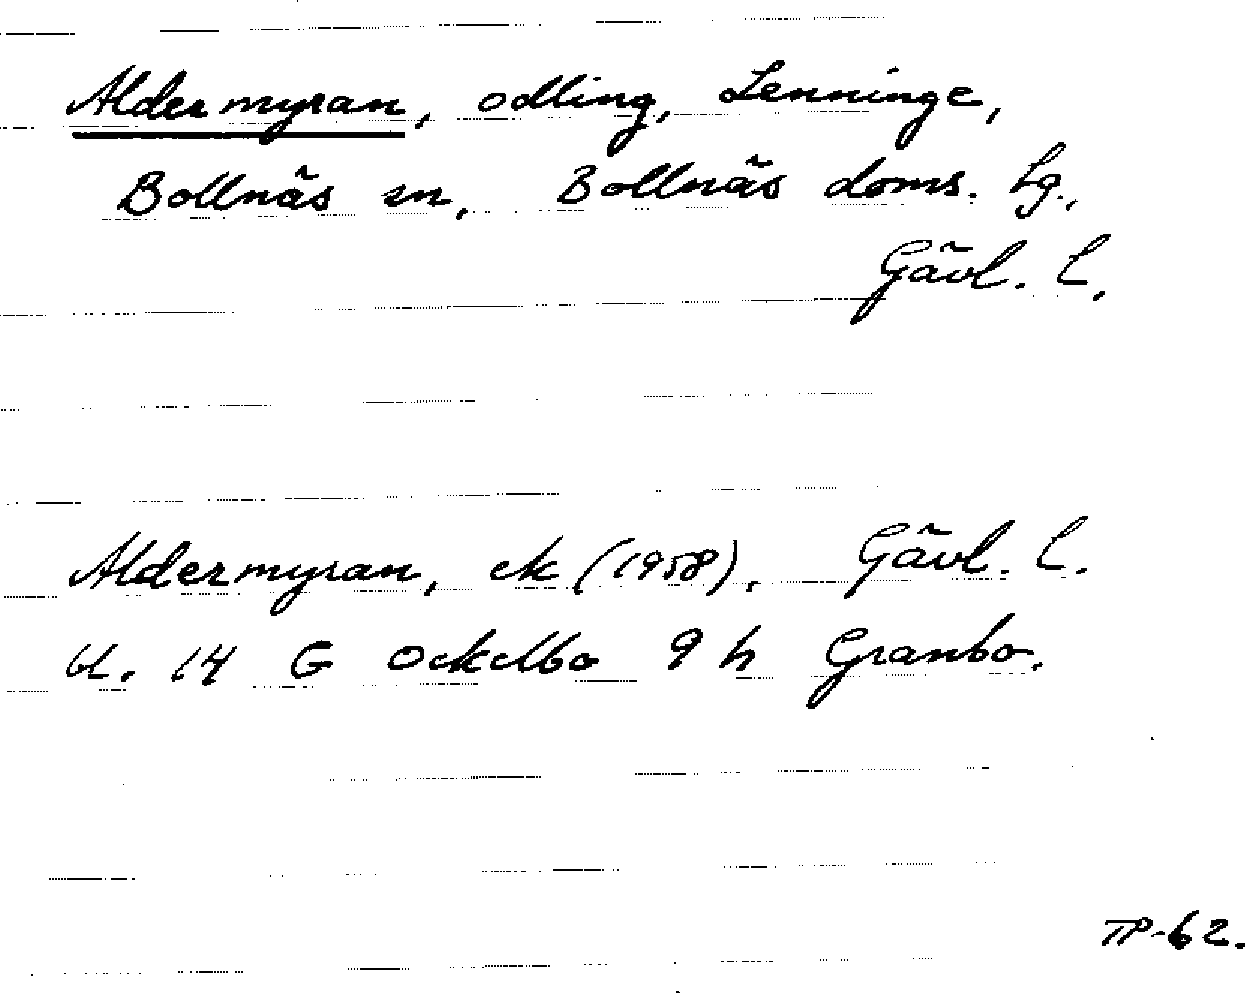 Aldermyran, odling, Lenninge,
Bollnäs sn, Bollnäs doms. hg.,
Gävl. l.
Aldermyran, ek (1958), Gävl. l.
bl. 14 G Ockelbo 9 h Granbo.
TP-62.